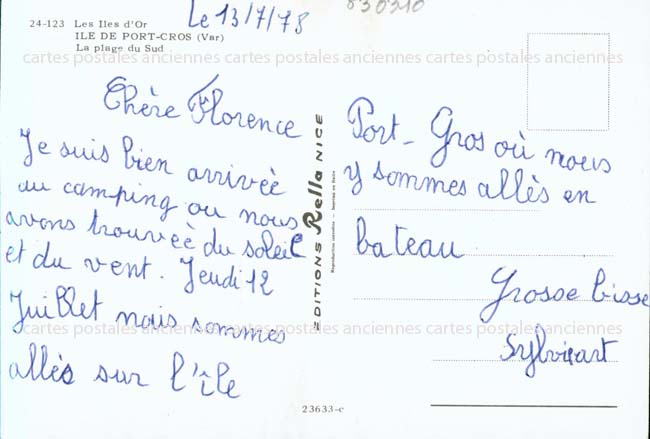 24-123 Les Iles d'Or
ILE DE PORT-CROS (Var)
La plage du Sud
Le 13/7/78
830210
cartes postales anciennes cartes postales anciennes cartes postales anciennes cartes postales anciennes
Chère Florence
Je suis bien arrivée
au camping ou nous
avons trouveéè du soleil
et du vent. Jeudi 12
Juillet nous sommes
allés sur l'île
EDITIONS Rella NICE
Reproduction interdite - Imprimé en Italie
Port-Gros où nous
y sommes allés en
bateau
Grosse bisse
cartes postales anciennes cartes postales anciennes cartes postales anciennes cartes postales anciennes
23633-c